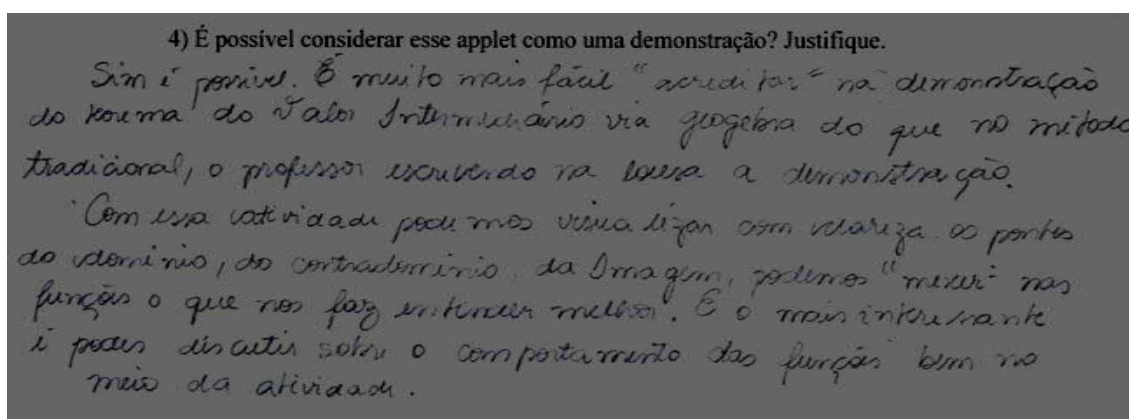 4) É possível considerar esse applet como uma demonstração? Justifique.
Sim é possível. É muito mais fácil "acreditar" na demonstração
do teorema do Valor Intermediário via geogebra do que no método
tradicional, o professor escrevendo na lousa a demonstração.
Com essa atividade podemos visualizar com clareza os pontos
do domínio, do contradomínio, da Imagem, podemos "mexer" nas
funções o que nos faz entender melhor. E o mais interessante
é poder discutir sobre o comportamento das funções bem no
meio da atividade.